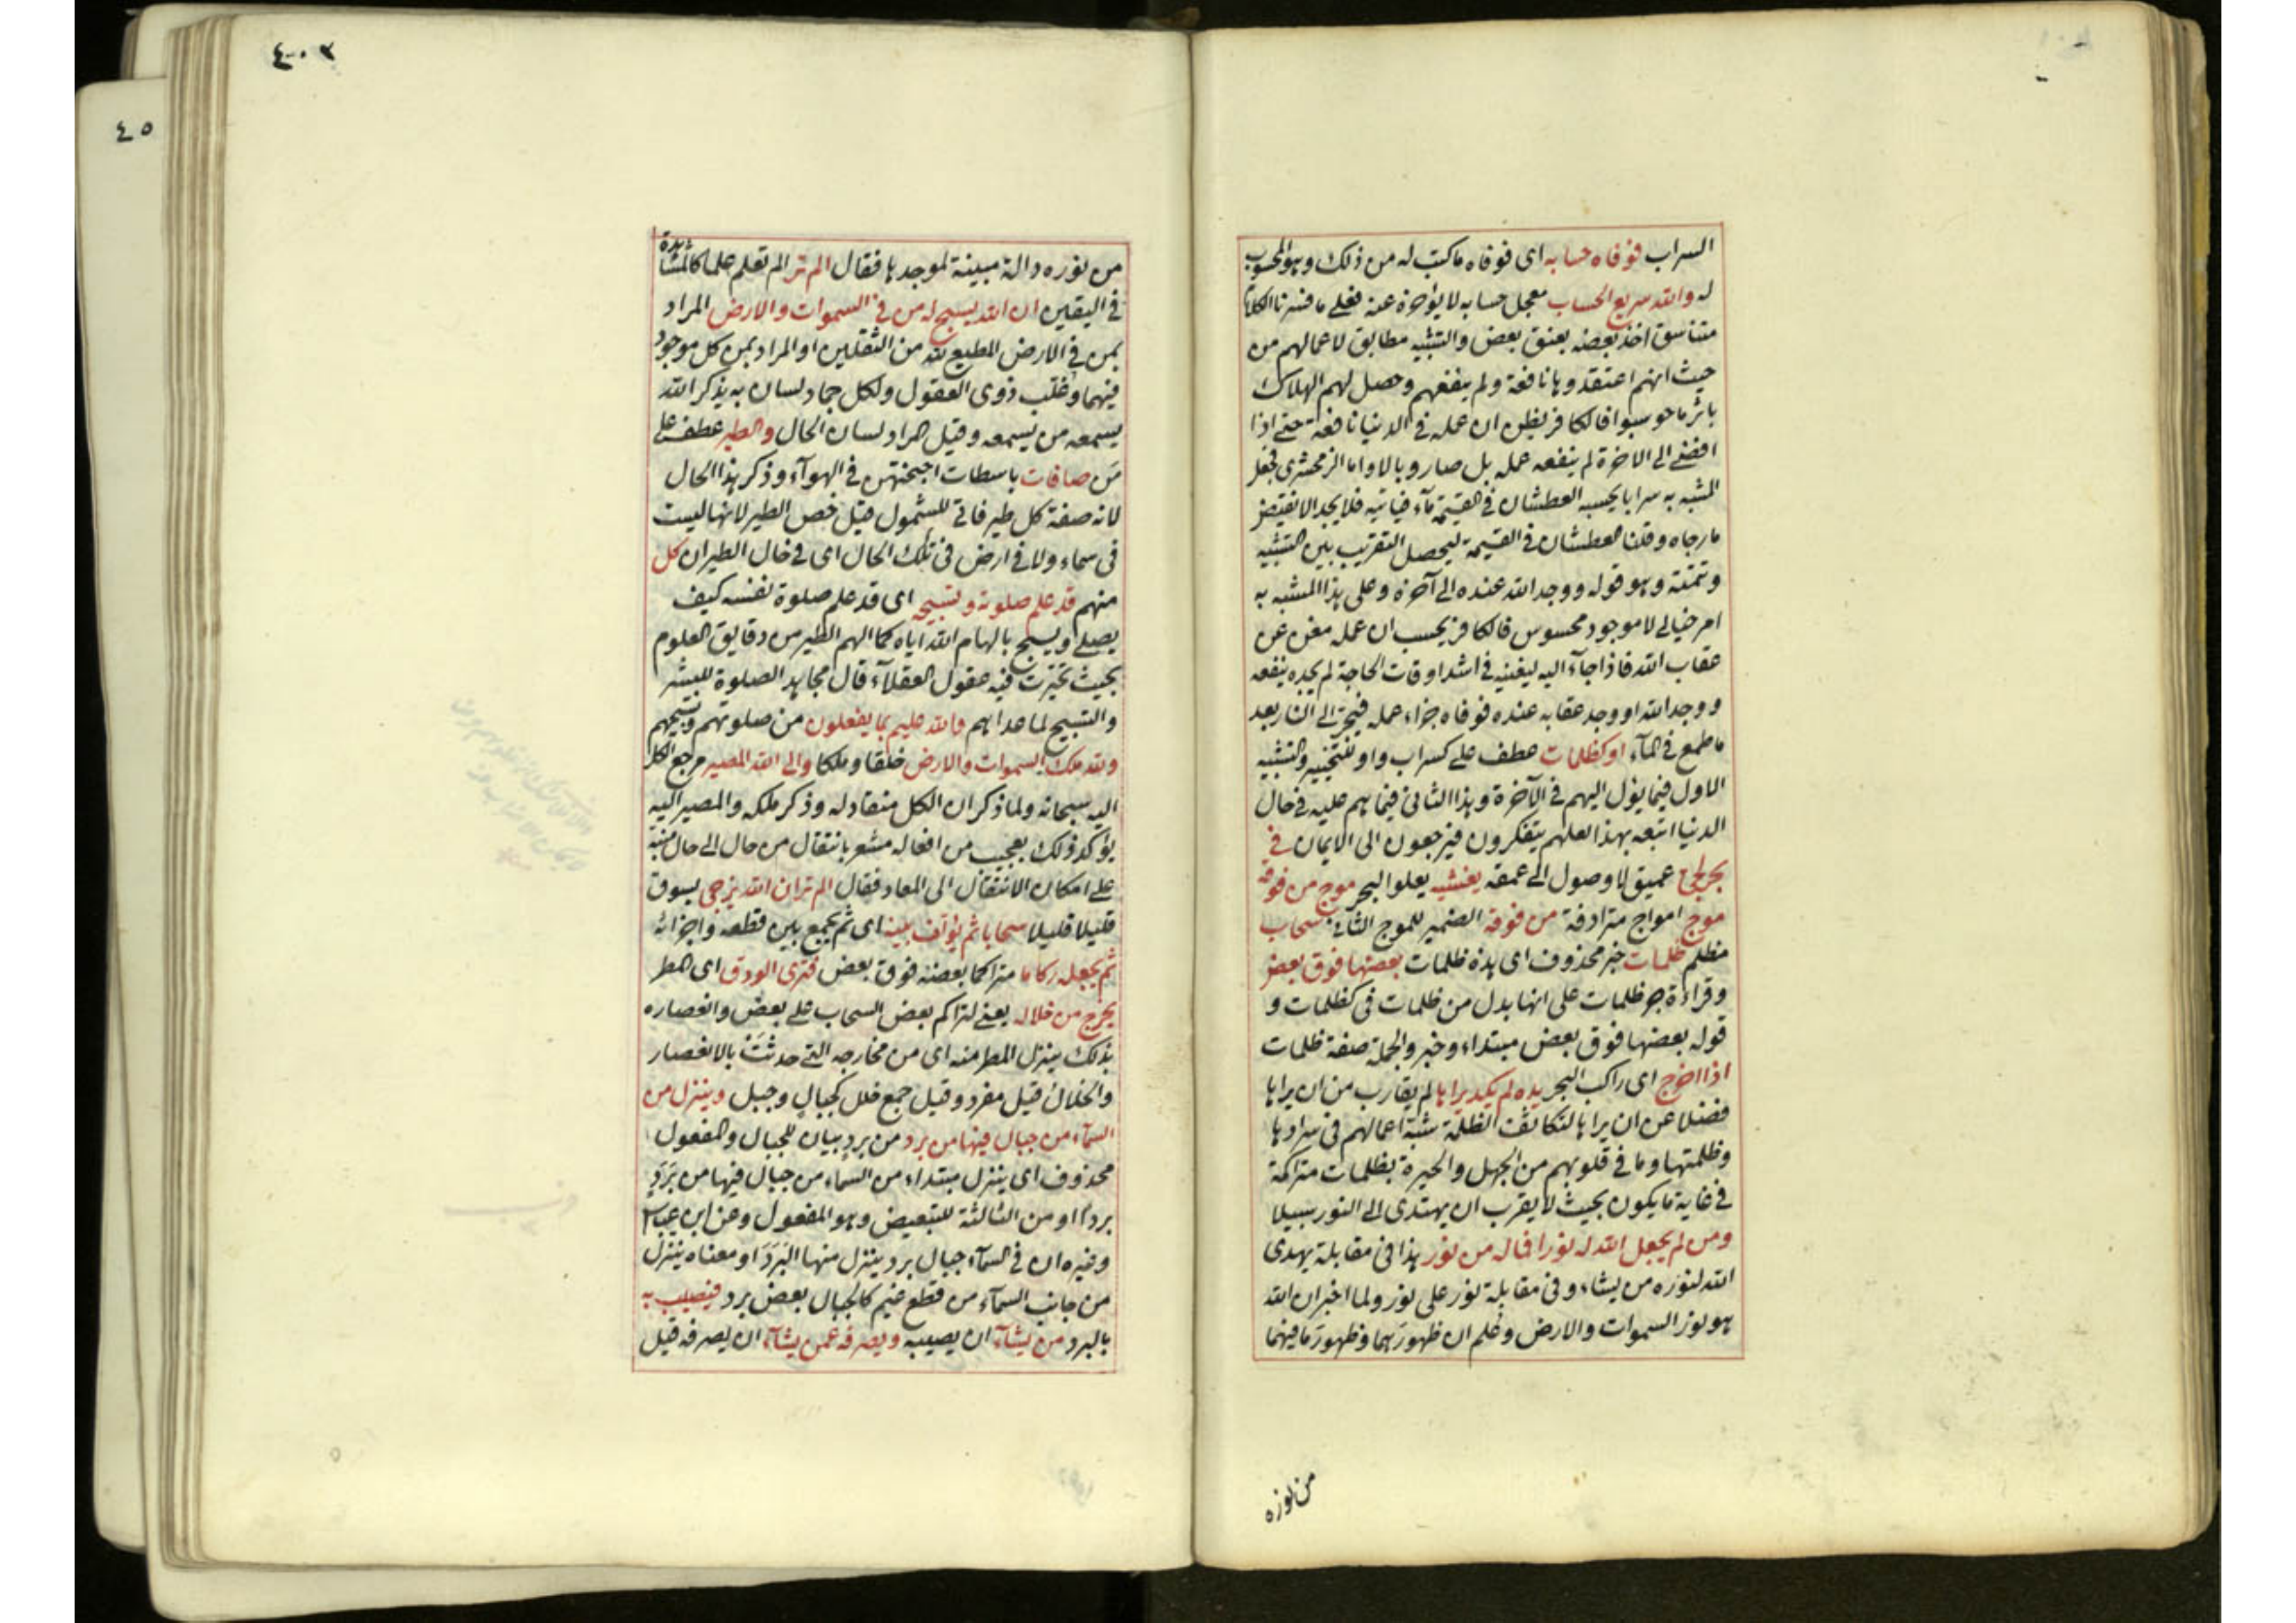 السراب فوفاه حسابه اى فوفاه ما كتب له من ذلك وهو المحسوب
له والله سريع الحساب معجل حسابه لا يؤخره عنه فعلى ما فسرنا الكلام
متناسق اخذ بعضه بعنق بعض والتشبيه مطابق لاعمالهم من
حيث انهم اعتقدوها نافعة ولم ينفعهم وحصل لهم الهلاك
باثر ما حوسبوا فالكافر يظن ان عمله فى الدنيا نافعة حتى اذا
افضى الى الاخرة لم ينفعه عمله بل صار وبالا واما الزمخشرى فجعل
المشبه به سرابا يحسبه العطشان فى القيمة مآء فيأتيه فلا يجد الا نقيض
ما رجاه وقلنا العطشان فى القيمة ليحصل التقريب بين التشبيه
وتتمته وهو قوله ووجد الله عنده الى آخره وعلى هذا المشبه به
امر خيالى لا موجود محسوس فالكافر يحسب ان عمله مغن عن
عقاب الله فاذا جآء اليه ليغنيه فى اشد اوقات الحاجة لم يجده ينفعه
ووجد الله او وجد عقابه عنده فوفاه جزاء عمله فيجر الى النار بعد
ما طمع فى المآء او كظلمات عطف على كسراب واو للتخيير والتشبيه
الاول فيما يؤل اليهم فى الآخرة وهذا الثانى فيما هم عليه فى حال
الدنيا اتبعه بهذا لعلهم يتفكرون فيرجعون الى الايمان فى
بحر لجى عميق لا وصول الى عمقه يغشيه يعلو البحر موج من فوقه
موج امواج مترادفة من فوقه الضمير للموج الثانى سحاب
مظلم ظلمات خبر محذوف اى هذه ظلمات بعضها فوق بعض
وقراءة جر ظلمات على انها بدل من ظلمات فى كظلمات و
قوله بعضها فوق بعض مبتداء وخبر والجملة صفة ظلمات
اذا اخرج اى راكب البحر يده لم يكد يراها لم يقارب من ان يراها
فضلا عن ان يراها لتكاثف الظلمة شبه اعمالهم فى سوادها
وظلمتها وما فى قلوبهم من الجهل والحيرة بظلمات متراكمة
فى غاية ما يكون بحيث لا يقرب ان يهتدى الى النور سبيلا
ومن لم يجعل الله له نورا فما له من نور هذا فى مقابلة يهدى
الله لنوره من يشاء وفى مقابلة نور على نور ولما اخبر ان الله
هو نور السموات والارض وعلم ان ظهورهما وظهور ما فيهما
من نوره
٤٠٢
٤٥
من نوره دالة مبينة لموجدها فقال الم تر الم تعلم علما كالمشاهدة
فى اليقين ان الله يسبح له من فى السموات والارض المراد
بمن فى الارض المطيع لله من الثقلين او المراد بمن كل موجود
فيهما وغلب ذوى العقول ولكل جماد لسان به يذكر الله
يسمعه من يسمعه وقيل المراد لسان الحال والطير عطف على
من صافات باسطات اجنحتهن فى الهوآء وذكر هذا الحال
لانه صفة كل طير فاتى للشمول قيل خص الطير لانها ليست
فى سماء ولا فى ارض فى تلك الحال اى فى حال الطيران كل
منهم قد علم صلوته وتسبيحه اى قد علم صلوة نفسه كيف
يصلى ويسبح بالهام الله اياه كما الهم الطير من دقايق العلوم
بحيث تحيرت فيه عقول العقلآء قال مجاهد الصلوة للبشر
والتسبيح لما عداهم والله عليم بما يفعلون من صلوتهم وتسبيحهم
ولله ملك السموات والارض خلقا وملكا والى الله المصير مرجع الكل
اليه سبحانه ولما ذكر ان الكل منقاد له وذكر ملكه والمصير اليه
يؤكد ذلك بعجيب من افعاله مشعر بانتقال من حال الى حال منبه
على امكان الانتقال الى المعاد فقال الم تر ان الله يزجى يسوق
قليلا قليلا سحابا ثم يؤلف بينه اى ثم يجمع بين قطعه واجزائه
ثم يجعله ركاما متراكما بعضه فوق بعض فترى الودق اى المطر
يخرج من خلاله يعنى لتراكم بعض السحاب على بعض وانعصاره
بذلك ينزل المطر منه اى من مخارجه التى حدثت بالانعصار
والخلال قيل مفرد وقيل جمع خلل كجبال وجبل وينزل من
السمآء من جبال فيها من برد من برد بيان للجبال والمفعول
محذوف اى ينزل مبتداء من السماء من جبال فيها من برد
بردا او من الثالثة للتبعيض وهو المفعول وعن ابن عباس
وغيره ان فى السمآء جبال برد ينزل منها البرد او معناه ينزل
من جانب السمآء من قطع غيم كالجبال بعض برد فيصيب به
بالبرد من يشآء ان يصيبه ويصرفه عمن يشآء ان يصرفه قيل